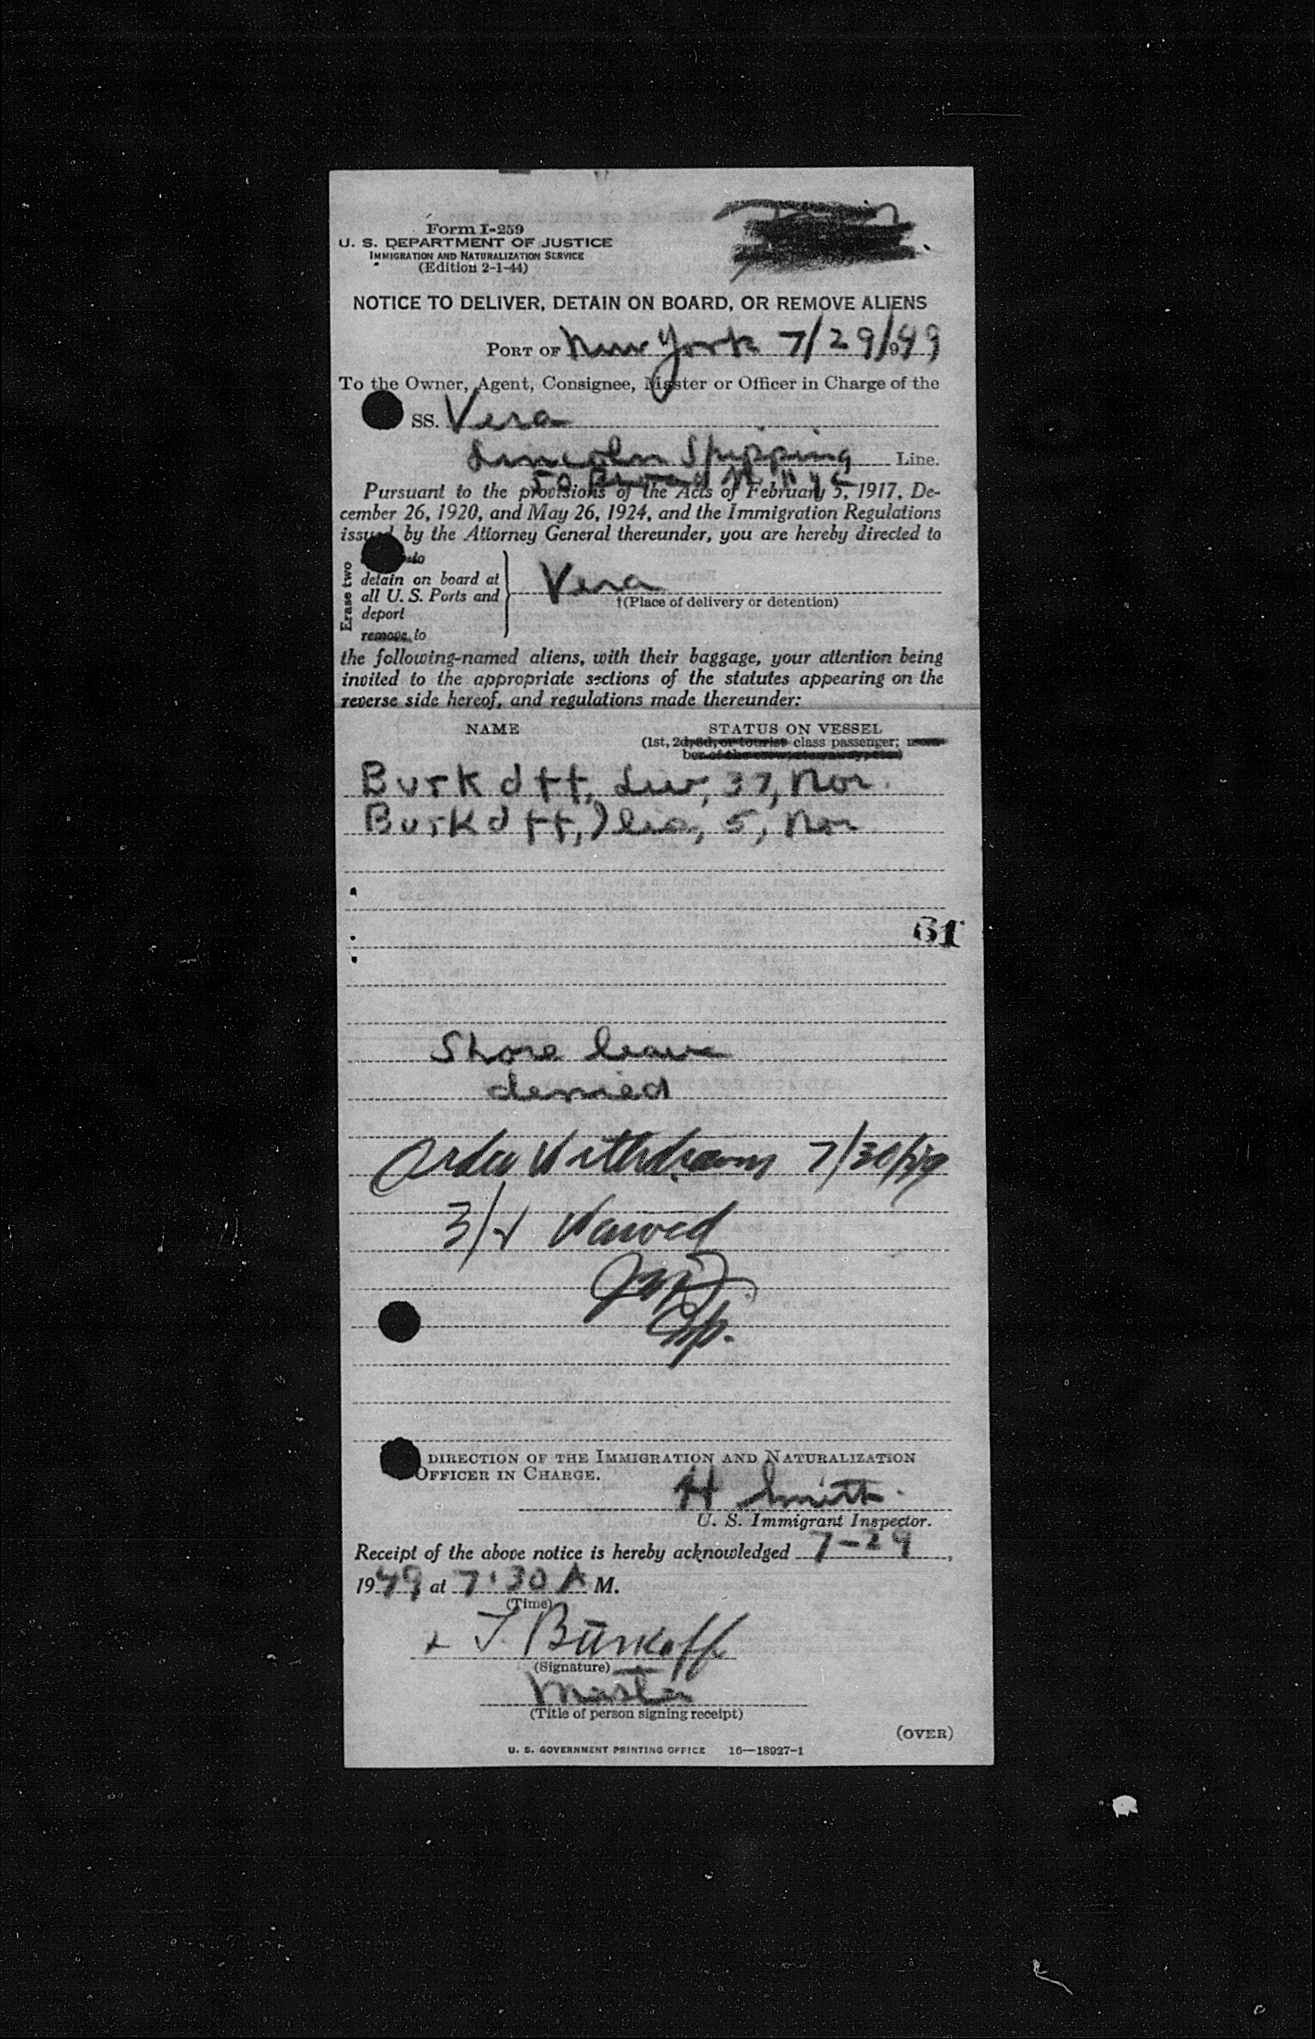 Form I-259
U. S. DEPARTMENT OF JUSTICE
IMMIGRATION AND NATURALIZATION SERVICE
(Edition 2-1-44)
NOTICE TO DELIVER, DETAIN ON BOARD, OR REMOVE ALIENS
PORT OF New York 7/29/49
To the Owner, Agent, Consignee, Master or Officer in Charge of the
SS. Vera
Lincoln Shipping Line.
50 Broad
Pursuant to the provisions of the Acts of February 5, 1917, De-
cember 26, 1920, and May 26, 1924, and the Immigration Regulations
issued by the Attorney General thereunder, you are hereby directed to
Erase two
to
detain on board at
all U. S. Ports and
deport
remove to
Vera
†(Place of delivery or detention)
the following-named aliens, with their baggage, your attention being
invited to the appropriate sections of the statutes appearing on the
reverse side hereof, and regulations made thereunder:
NAME STATUS ON VESSEL
(1st, 2d, 3d, or tourist class passenger; mem-
ber of the crew,
Burkoff, Liv, 37, Nor.
Burkoff, 5, Nor
61
Shore leave
denied
Order Withdrawn 7/30/49
3/4 Waived
Insp.
DIRECTION OF THE IMMIGRATION AND NATURALIZATION
OFFICER IN CHARGE.
H Smith.
U. S. Immigrant Inspector.
Receipt of the above notice is hereby acknowledged 7-29,
1949 at 7:30 A M.
(Time)
x T. Burkoff
(Signature)
Master
(Title of person signing receipt)
(OVER)
U. S. GOVERNMENT PRINTING OFFICE 16—18927-1